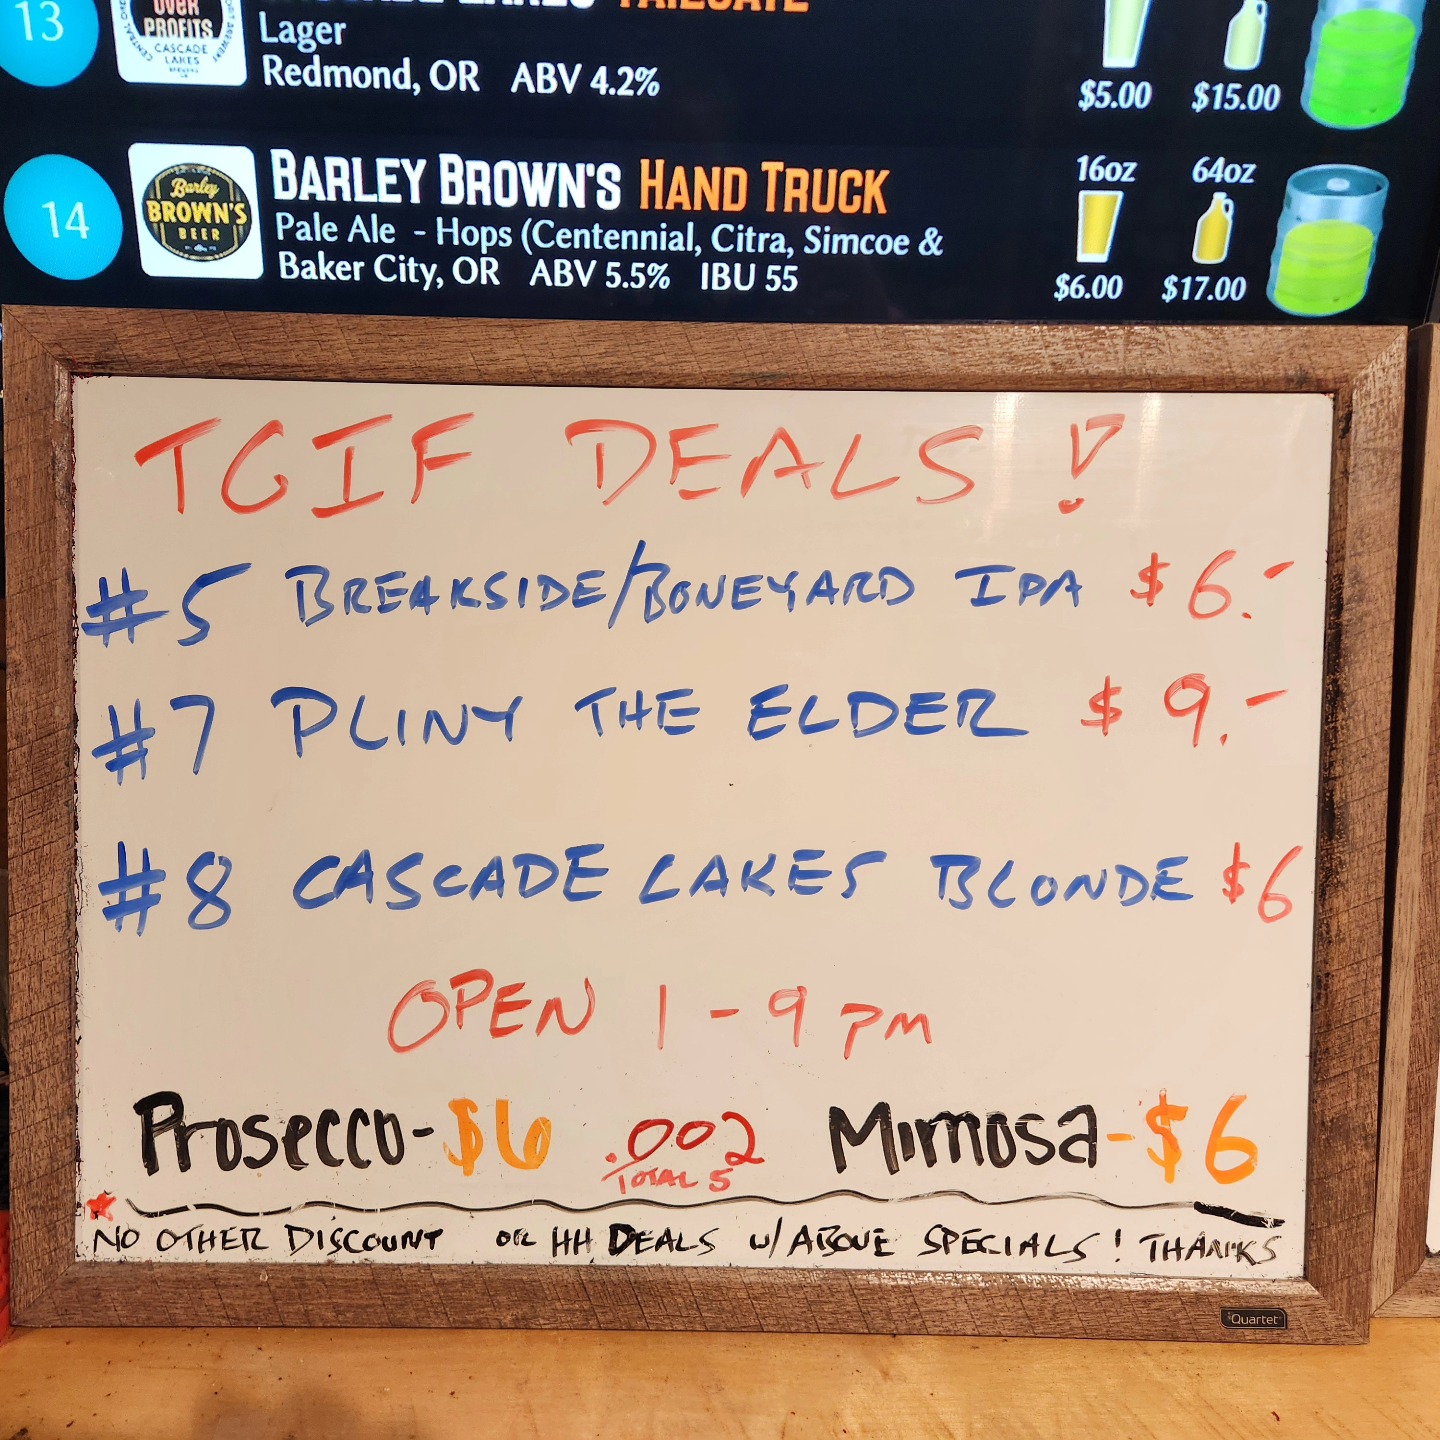 13
OVER
PROFITS
CASCADE
LAKES
TAILGATE
Lager
Redmond, OR ABV 4.2%
$5.00 $15.00
14
Barley
BROWN'S
BEER
BARLEY BROWN'S HAND TRUCK
Pale Ale - Hops (Centennial, Citra, Simcoe &
Baker City, OR ABV 5.5% IBU 55
16oz 64oz
$6.00 $17.00
TGIF DEALS!
#5 BREAKSIDE/BONEYARD IPA $6.-
#7 PLINY THE ELDER $9.-
#8 CASCADE LAKES BLONDE $6
OPEN 1-9 PM
Prosecco-$6 .002 Mimosa-$6
TOTAL 5
NO OTHER DISCOUNT OR HH DEALS W/ABOVE SPECIALS! THANKS
Quartet